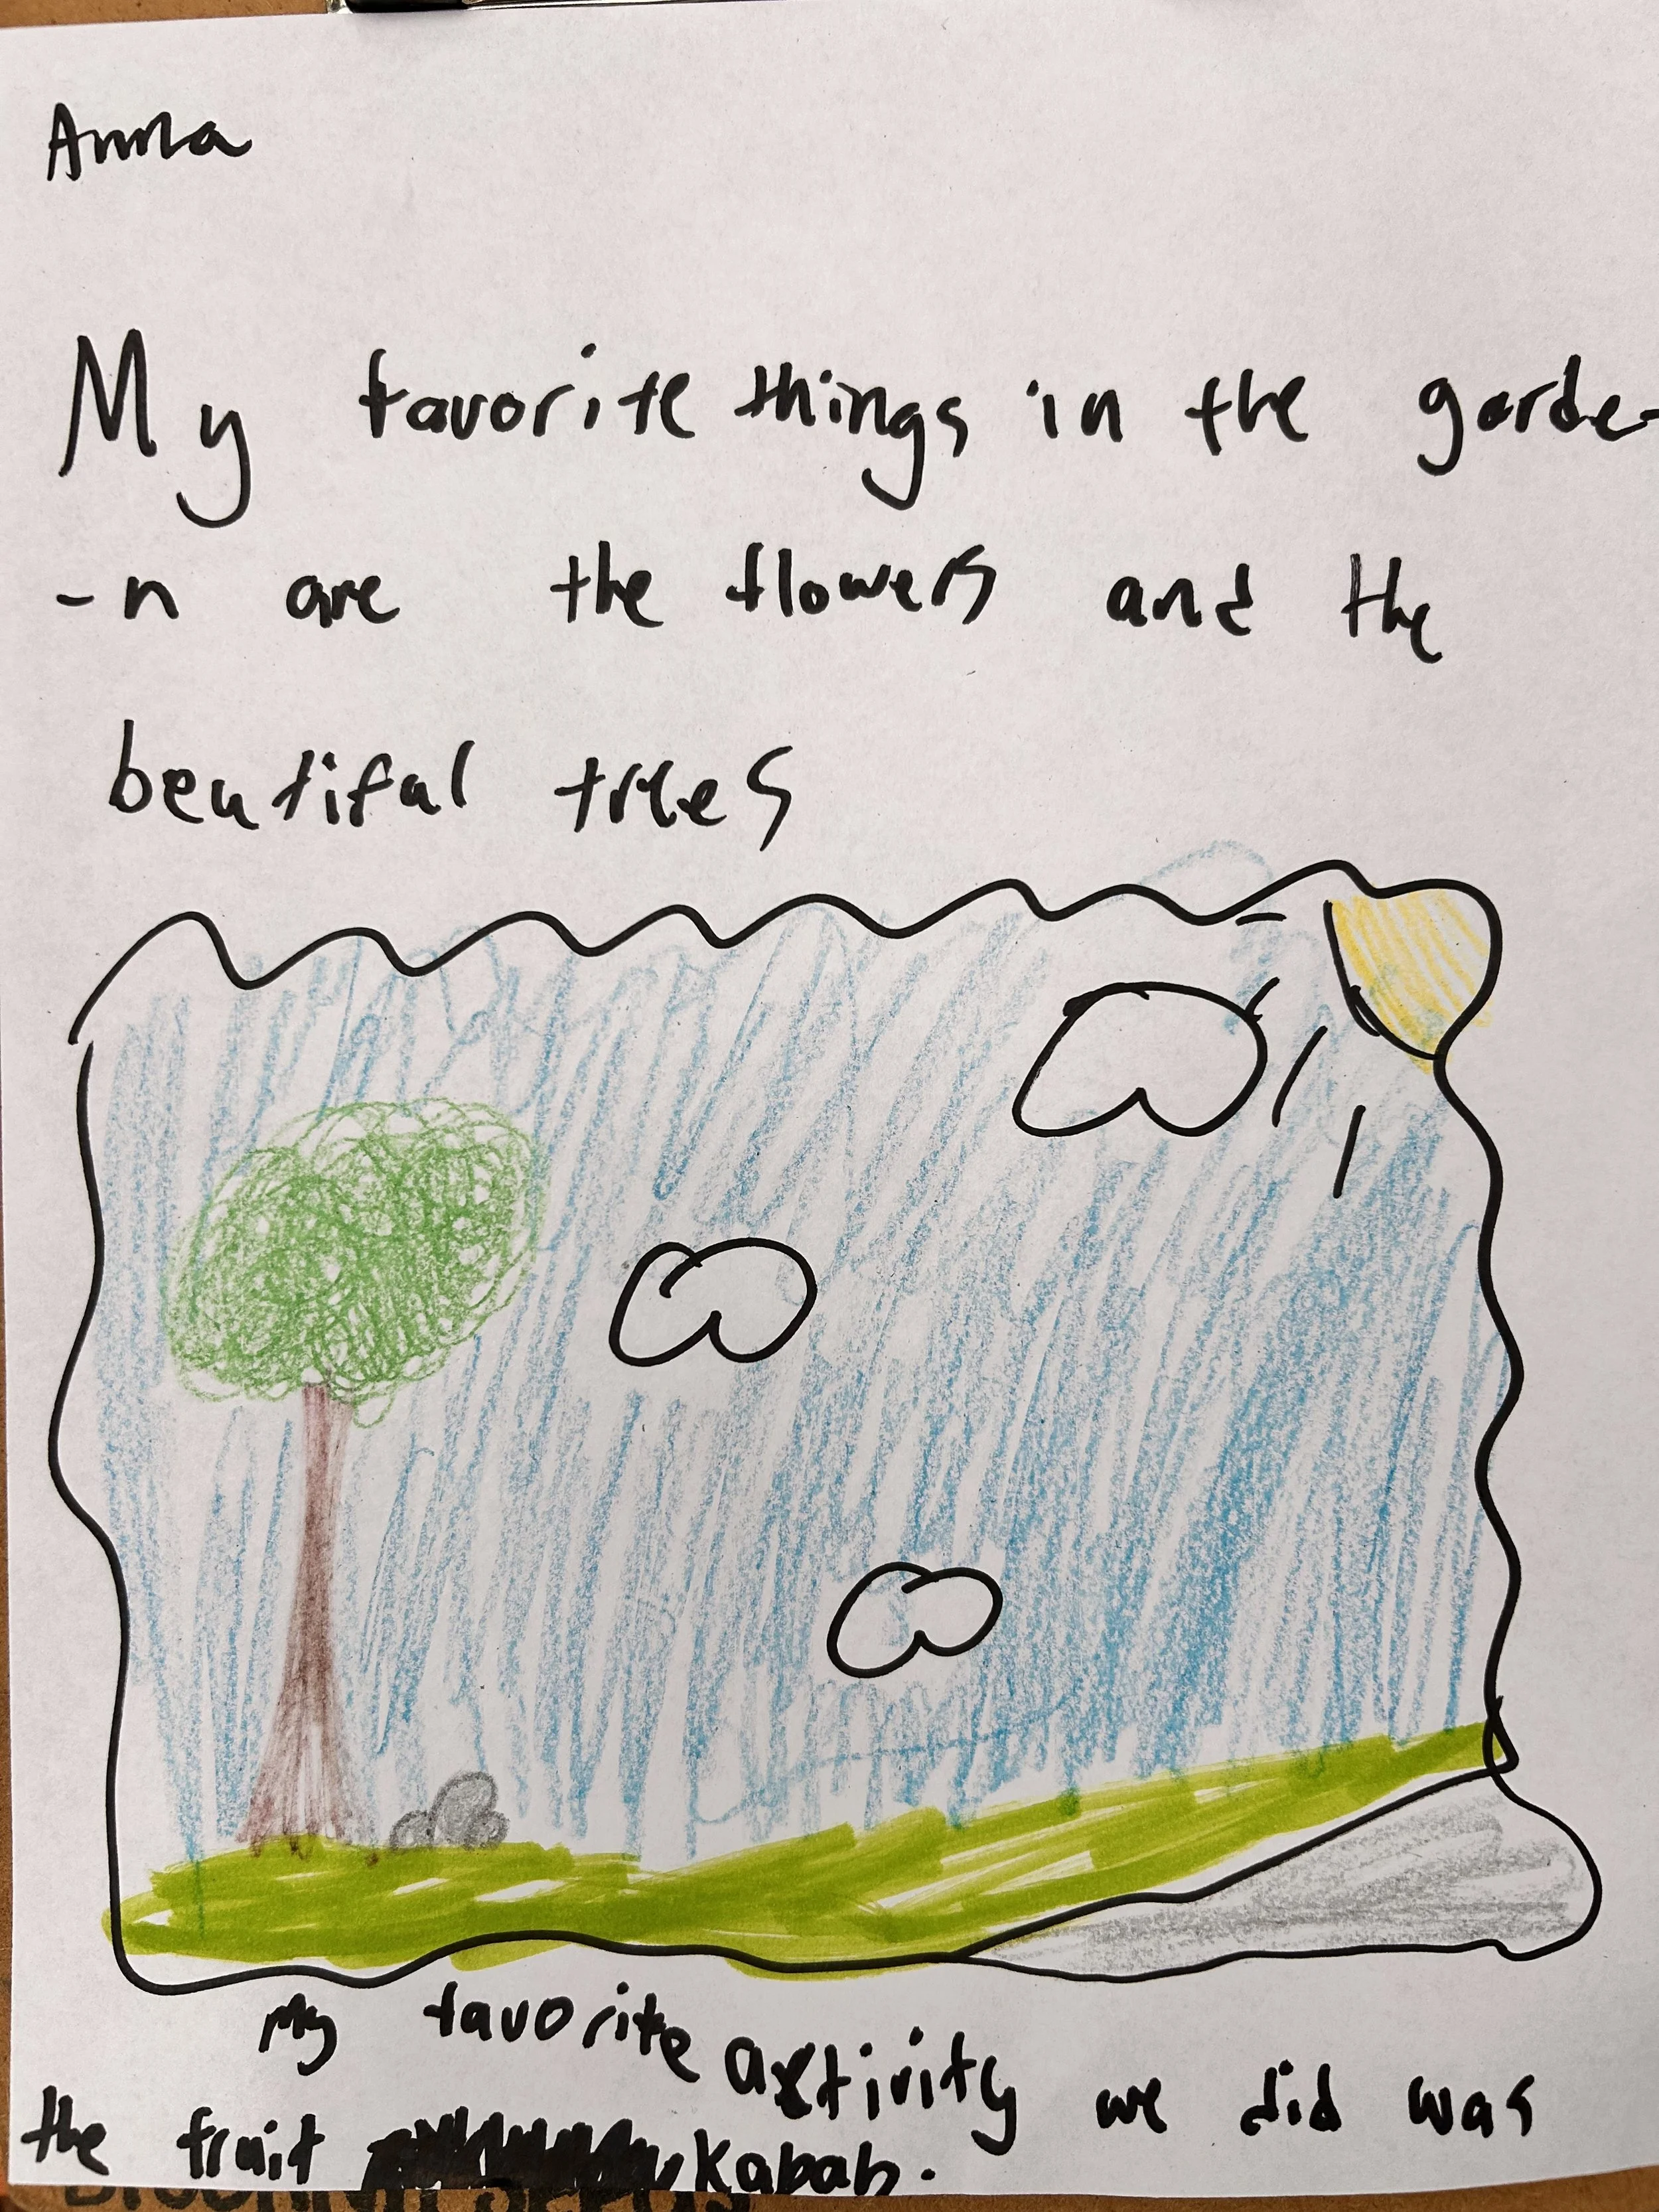 Anna
My favorite things in the garde-
-n are the flowers and the
beutiful trees
My favorite activity we did was
the fruit Kabab.